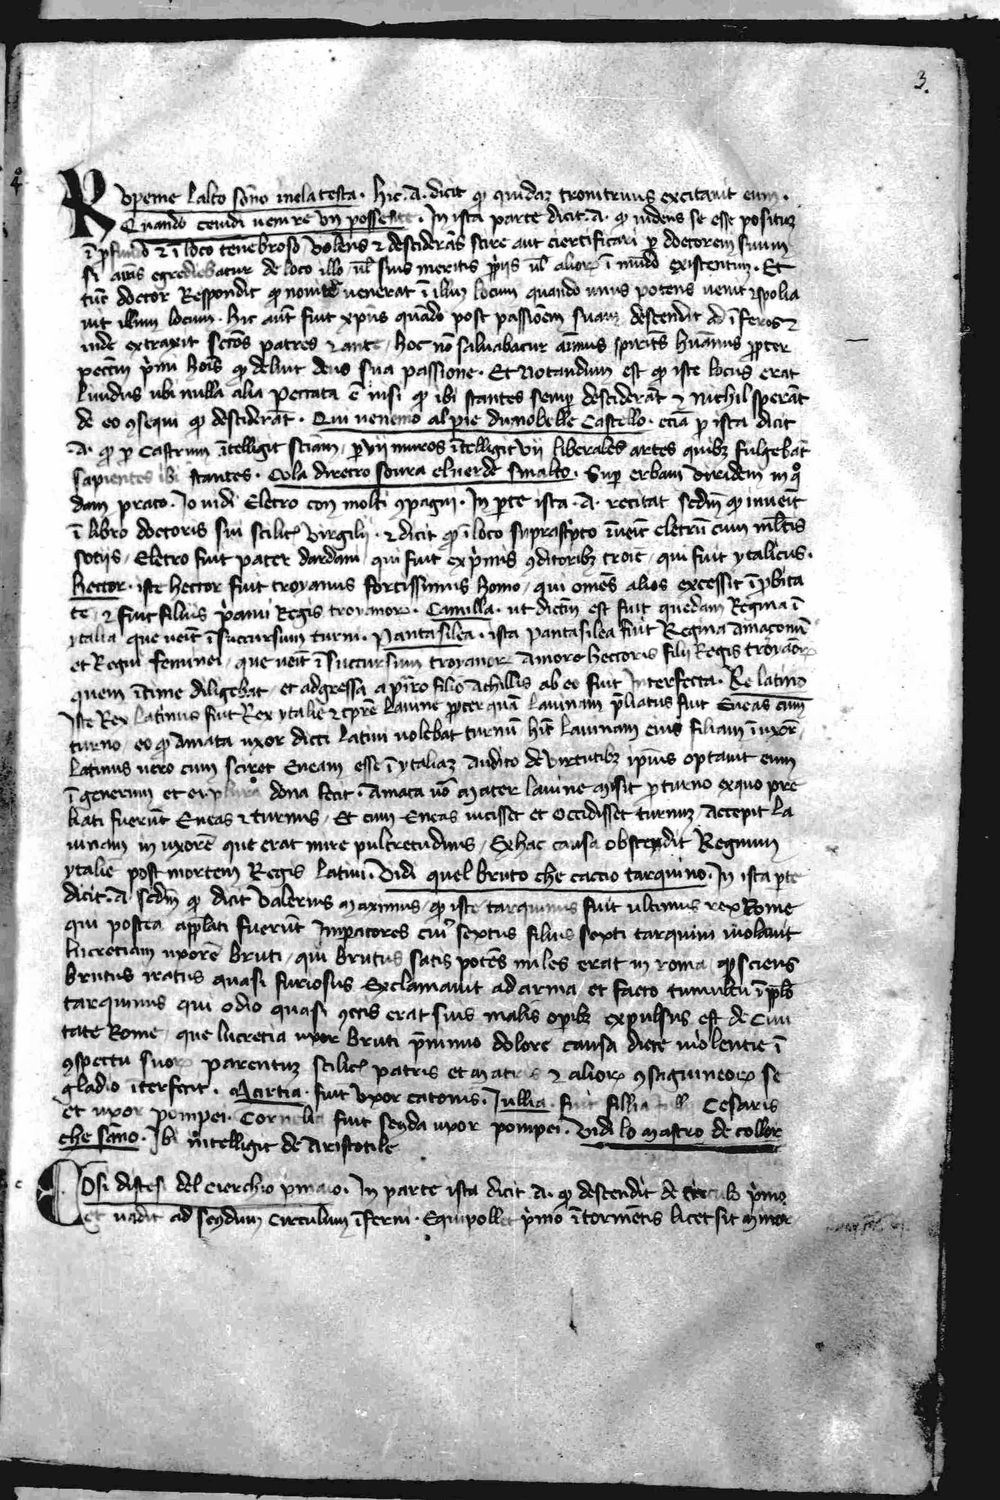 3.
4º
Rvpeme lalto sōno inela testa. hic .A. dicit qͥ quidaȝ tronitruus excitauit eum.
Quando ceuidi uenire vn possente. In ista parte dicit .A. qͥ uidens se esse positūȝ
ī ꝓfundo ⁊ ī loco tenebroso volens ⁊ desciderās scire aut ciertificari ꝑ doctorem suum
si aīas egrediebatur de loco illo ul̄ suis meritis ꝓpriis ul̄ alioꝝ ī mūdo existentum. Et
tūc doctor Respondit qͥ nouiter uenerat ī illum locum quando unus potens uenit ⁊ spolia
uit illum locum. hic autē fuit xpus quādo post passionem suam descendit ad īferos ⁊
inde extraxit sctōs patres ⁊ ante, hoc nō saluabatur animus spiritus hūanus ꝓpter
pecctm̄ pͥmi hoīs qͥ deluit deus sua passione. Et Notandum est qͥ iste locus erat
Lindus ubi nulla alia peccata ē nisi qͥ ibi stantes semꝑ desciderāt ⁊ nichil sperāt
de eo ꝯsequi qͥ desciderāt. Qui uenemo al pie dunobelle Castello. eciā ꝑ ista dicit
.A. qͥ ꝑ Castrum ītelligit sciām, ꝑ vii muros ītelligit vii liberales artes quibȝ fulgebāt
sapientes ibi stantes. Cola diretro soura eluerde smalto. Suꝑ erbam viridem in qͦ
dam prato. Io uidi Eletro con molti ꝯpagni. In ꝑte ista .A. recitat sedm̄ qͥ inuenit
ī libro doctoris sui scilicꝫ Virgilij. ⁊ dicit qͥ ī loco suprascͥpto īueīt eletrū cum mltis
sotijs, Eletro fuit pater dardani, qui fuit ex pͥmis ꝯditoribȝ troie, qui fuit ytalicus.
hector. iste hector fuit troyanus fortissimus homo, qui omēs alios excessit ī ꝓbita
te, ⁊ fuit filius pͥami Regis troyanoꝝ. Camilla. ut dictm̄ est fuit quedam Regina ī
ytalia que uenit ī succursum turni. Pantasilea. ista pantasilea fuit Regina Amaconū
et Regni feminei, que uenit ī succursum troyanoꝝ Amore hectoris filij Regis troyāoꝝ
quem ītime diligebat, et adgressa a piro filio Achillis ab eo fuit Interfecta. Re latino
Iste Rex latinus fuit Rex ytalie ⁊ pr̄e Lauine ꝓpter quā lauinam ꝓliatus fuit Eneas cum
turno, eo qͥ Amata uxor dicti latini uolebat turnū hr̄e Lauinam eius filiam ī uxorē,
latinus uero cum sciret Eneam esse ī ytaliaȝ Audito de virtutibȝ ipsius optauit eum
ī generum et ei plura dona fecit. Amata uō mater lauine misit ꝓ turno ex quo pre
liati fuerūt Eneas ⁊ turnus, Et cum Eneas uicisset et occidisset turnuȝ, Accepit la
uinam in uxorē que erat mire pulcretudinis, Ex hac causa obstendit Regnum
ytalie post mortem Regis latini. Vidi quel bruto che caccio tarquino. In ista ꝑte
dicit .A. sedm̄ qͥ dicit Valerius maximus, qͥ iste tarquinus fuit ultimus rex Rome
qui postea appllati fuerūt Impatores cuiꝰ sextus filius sexti tarquini uiolauit
lucretiam uxorē bruti, qui brutus satis potēs miles erat in roma, qͥ sciens
brutus iratus quasi furiosus exclamauit ad arma, et facto tumultu ī pplō
tarquinus qui odio quasi ꝯctis erat suis malis opibȝ expulsus est de ciui
tate Rome, que lucretia uxor bruti pͥ nimio dolore causa dicte uiolentie ī
ꝯspectu suoꝝ parentuȝ scilicꝫ patris et matris ⁊ alioꝝ ꝯsaguineoꝝ se
gladio īterfecit. Martia. fuit vxor catonis. Iullia. fuit fillia Iulli Cesaris
et uxor pompei. Cornelia fuit scnda uxor pompei. Vidi lo mastro de collor
che sāno. Ibi ītelligit de Aristotile
COsi discesi del cierchio pͥmaio. In parte ista dicit .A. qͥ descendit de circulo pͥmo
et uadit ad scndum circulum īferni. Equipollet pͥmo ī tormētis licet sit minor